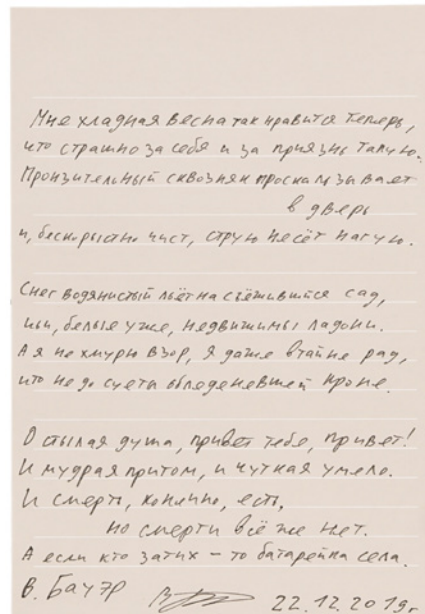 Мне хладная весна так нравится теперь,
что страшно за себя и за приязнь такую.
Пронзительный сквозняк проскальзывает
в дверь
и, бескорыстно чист, струю несёт нагую.
Снег водянистый льёт на съёжившийся сад,
чьи, белые уже, недвижимы ладони.
А я не хмурю взор, я даже втайне рад,
что не до суеты обледеневшей кроне.
О стылая душа, привет тебе, привет!
И мудрая притом, и чуткая умело.
И смерть, конечно, есть,
но смерти всё же нет.
А если кто затих – то батарейка села.
В. Бауэр
22.12.2019г